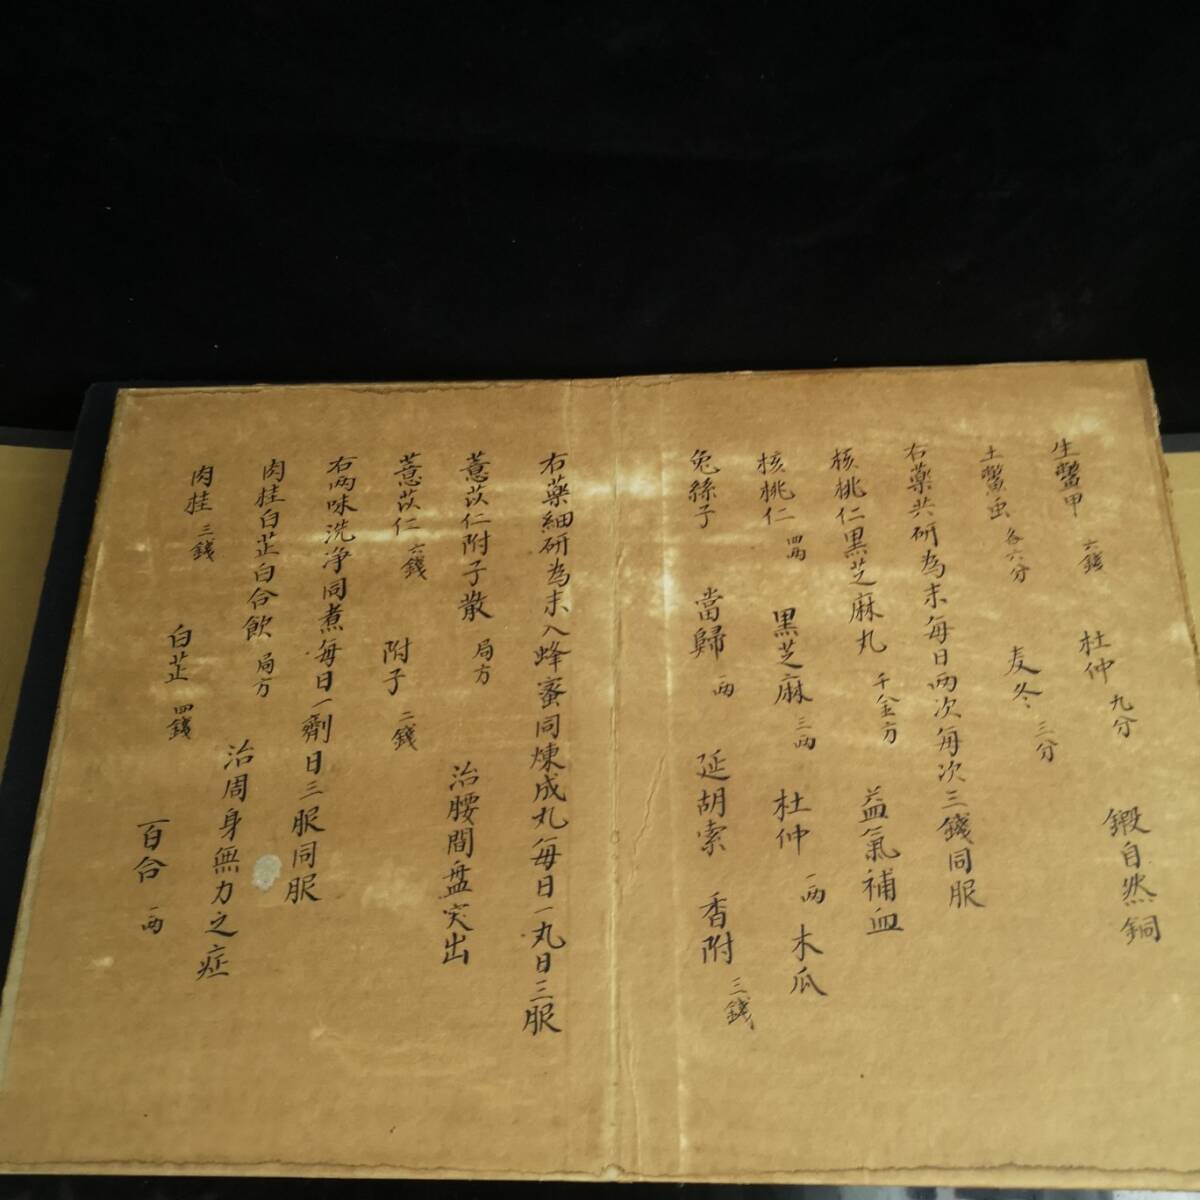 生鱉甲 六錢 杜仲 九分 鍛自然銅
土鱉虫 各六分 麦冬 三分
右藥共研為末每日两次每次三錢同服
核桃仁黑芝麻丸 千金方 益氣補血
核桃仁 四两 黑芝麻 三两 杜仲 一两 木瓜
兔絲子 當歸 一两 延胡索 香附 三錢
右藥細研為末入蜂蜜同煉成丸每日一丸日三服
薏苡仁附子散 局方 治腰間盘突出
薏苡仁 六錢 附子 二錢
右两味洗净同煮每日一劑日三服同服
肉桂白芷白合飲 局方 治周身無力之症
肉桂 三錢 白芷 四錢 百合 一两